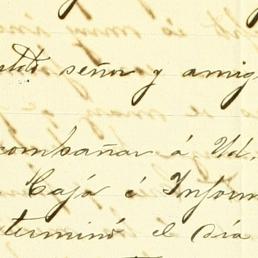 señor y amig
compañar á Ud.
Caja é Inform
terminó el día